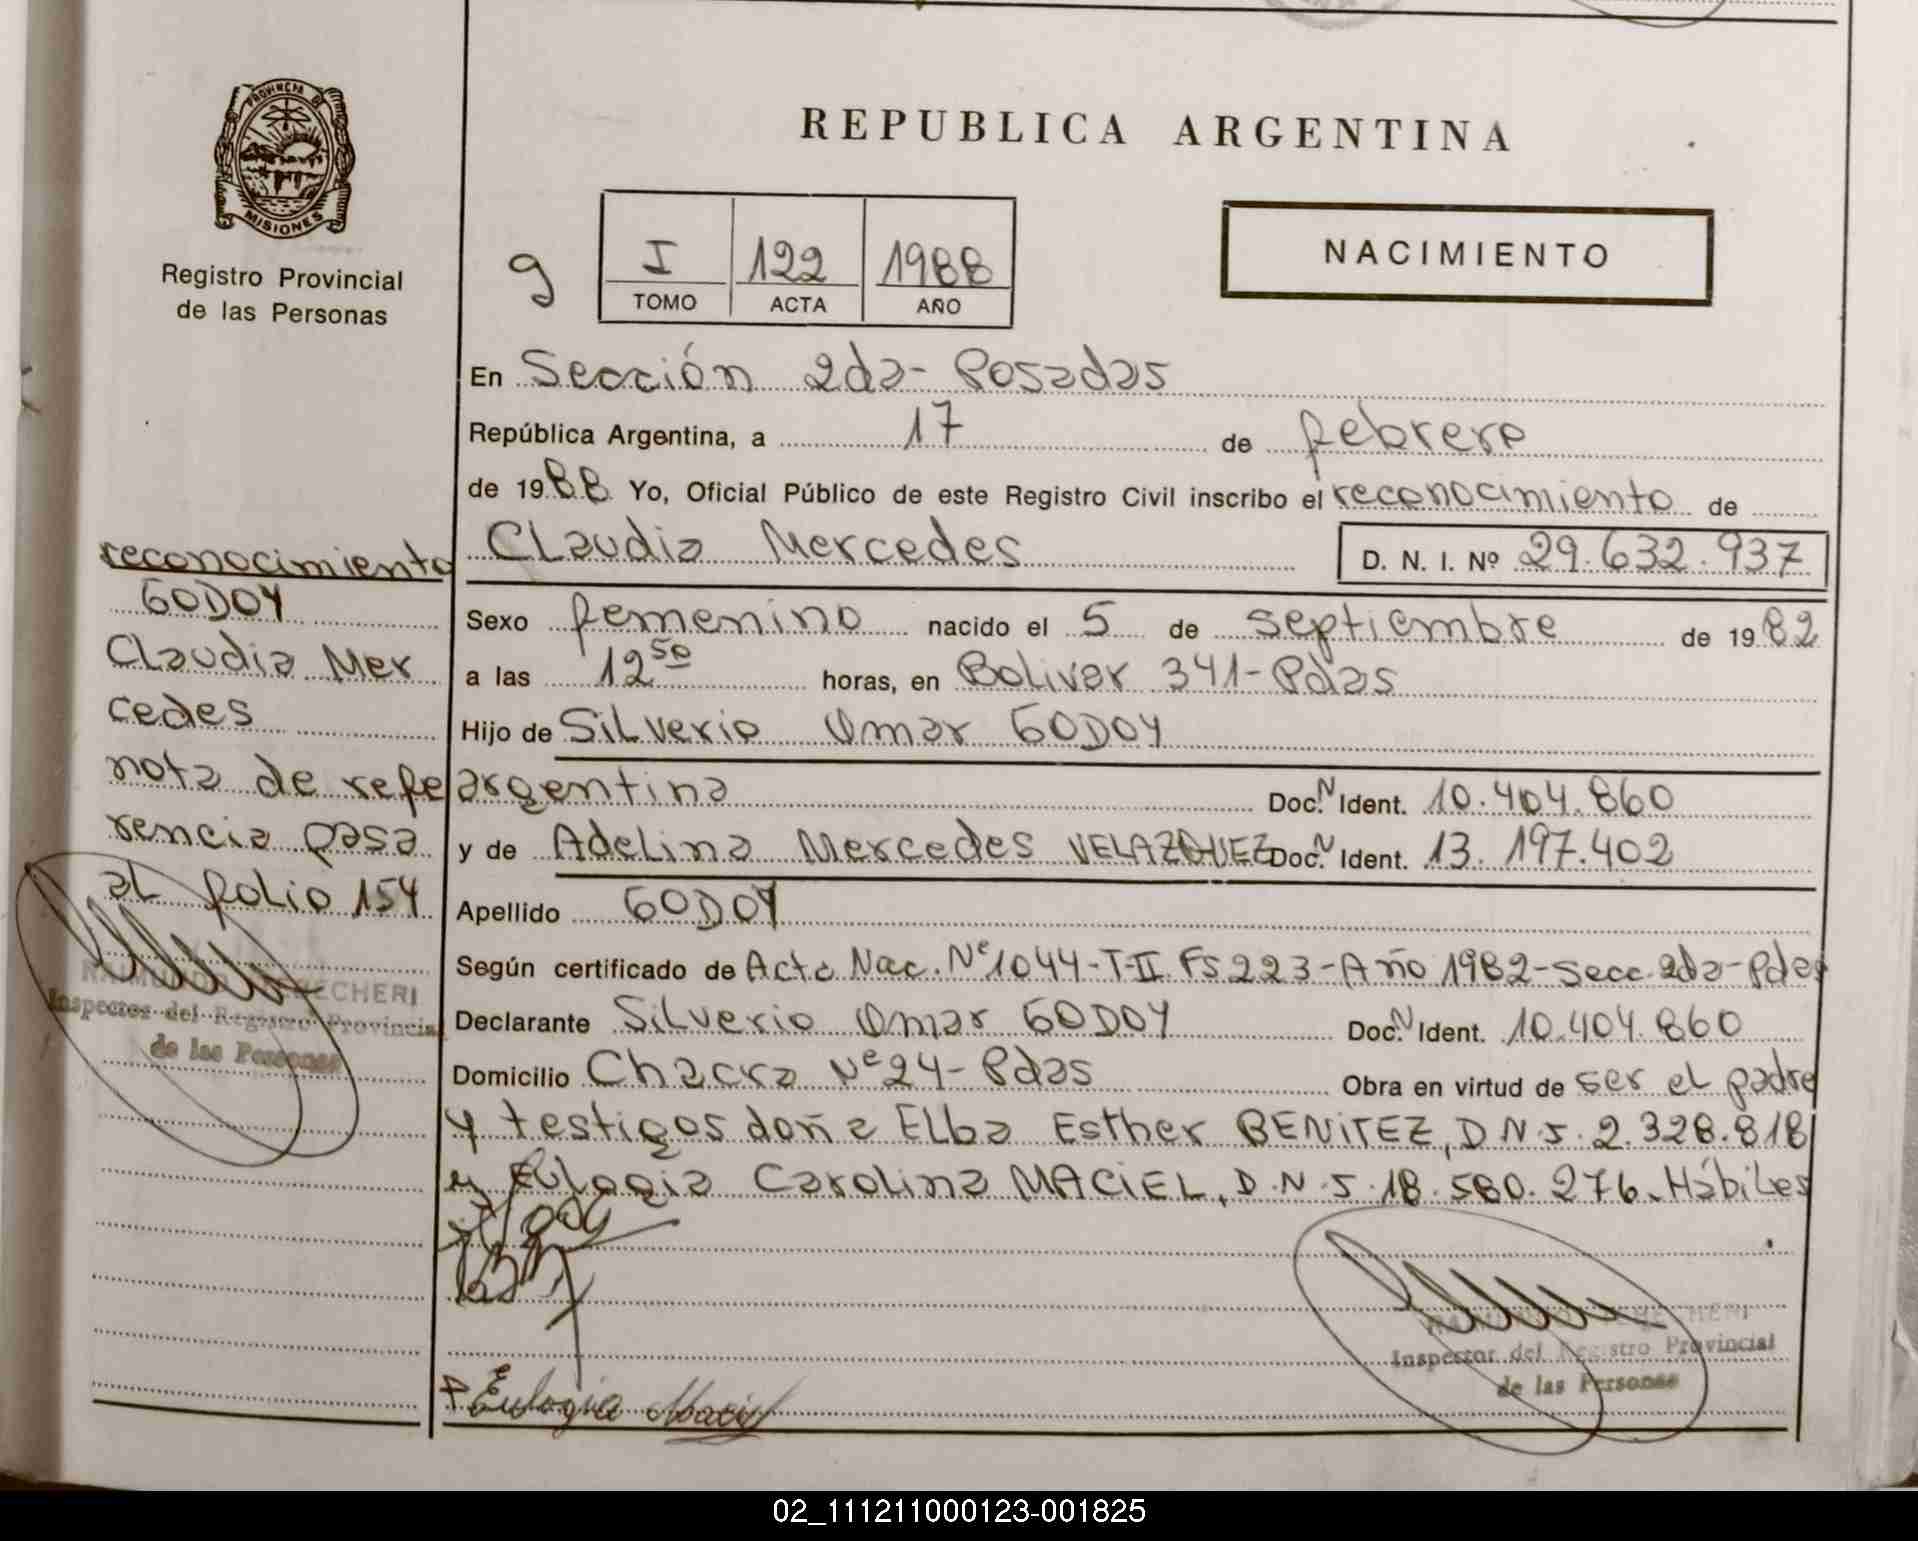 PROVINCIA D
MISIONES
Registro Provincial
de las Personas
REPUBLICA ARGENTINA
9
I 122 1988
TOMO ACTA AÑO
NACIMIENTO
En Sección 2da- Posadas
República Argentina, a 17 de febrero
de 1988 Yo, Oficial Público de este Registro Civil inscribo el reconocimiento de
Claudia Mercedes D. N. I. Nº 29.632.937
Sexo femenino nacido el 5 de septiembre de 1982
a las 12 50 horas, en Bolivar 341-Pdas
Hijo de Silverio Omar GODOY
argentina Doc. N Ident. 10.404.860
y de Adelina Mercedes VELAZQUEZ Doc. N Ident. 13.197.402
Apellido GODOY
Según certificado de Acta Nac. Nº 1044-T-II Fs 223-Año 1982-Secc 2da-Pdas
Declarante Silverio Omar GODOY Doc. N Ident. 10.404.860
Domicilio Chacra Nº 24-Pdas Obra en virtud de ser el padre
y testigos doña Elba Esther BENITEZ, D N I. 2.328.818
y Eulogia Carolina MACIEL, D.N.I. 18.580.276. Hábiles
Eulogia Maciel
Inspector del Registro Provincial
de las Personas
reconocimiento
GODOY
Claudia Mer
cedes
nota de refe
rencia pasa
al folio 154
Inspector del Registro Provincial
de las Personas
02_111211000123-001825